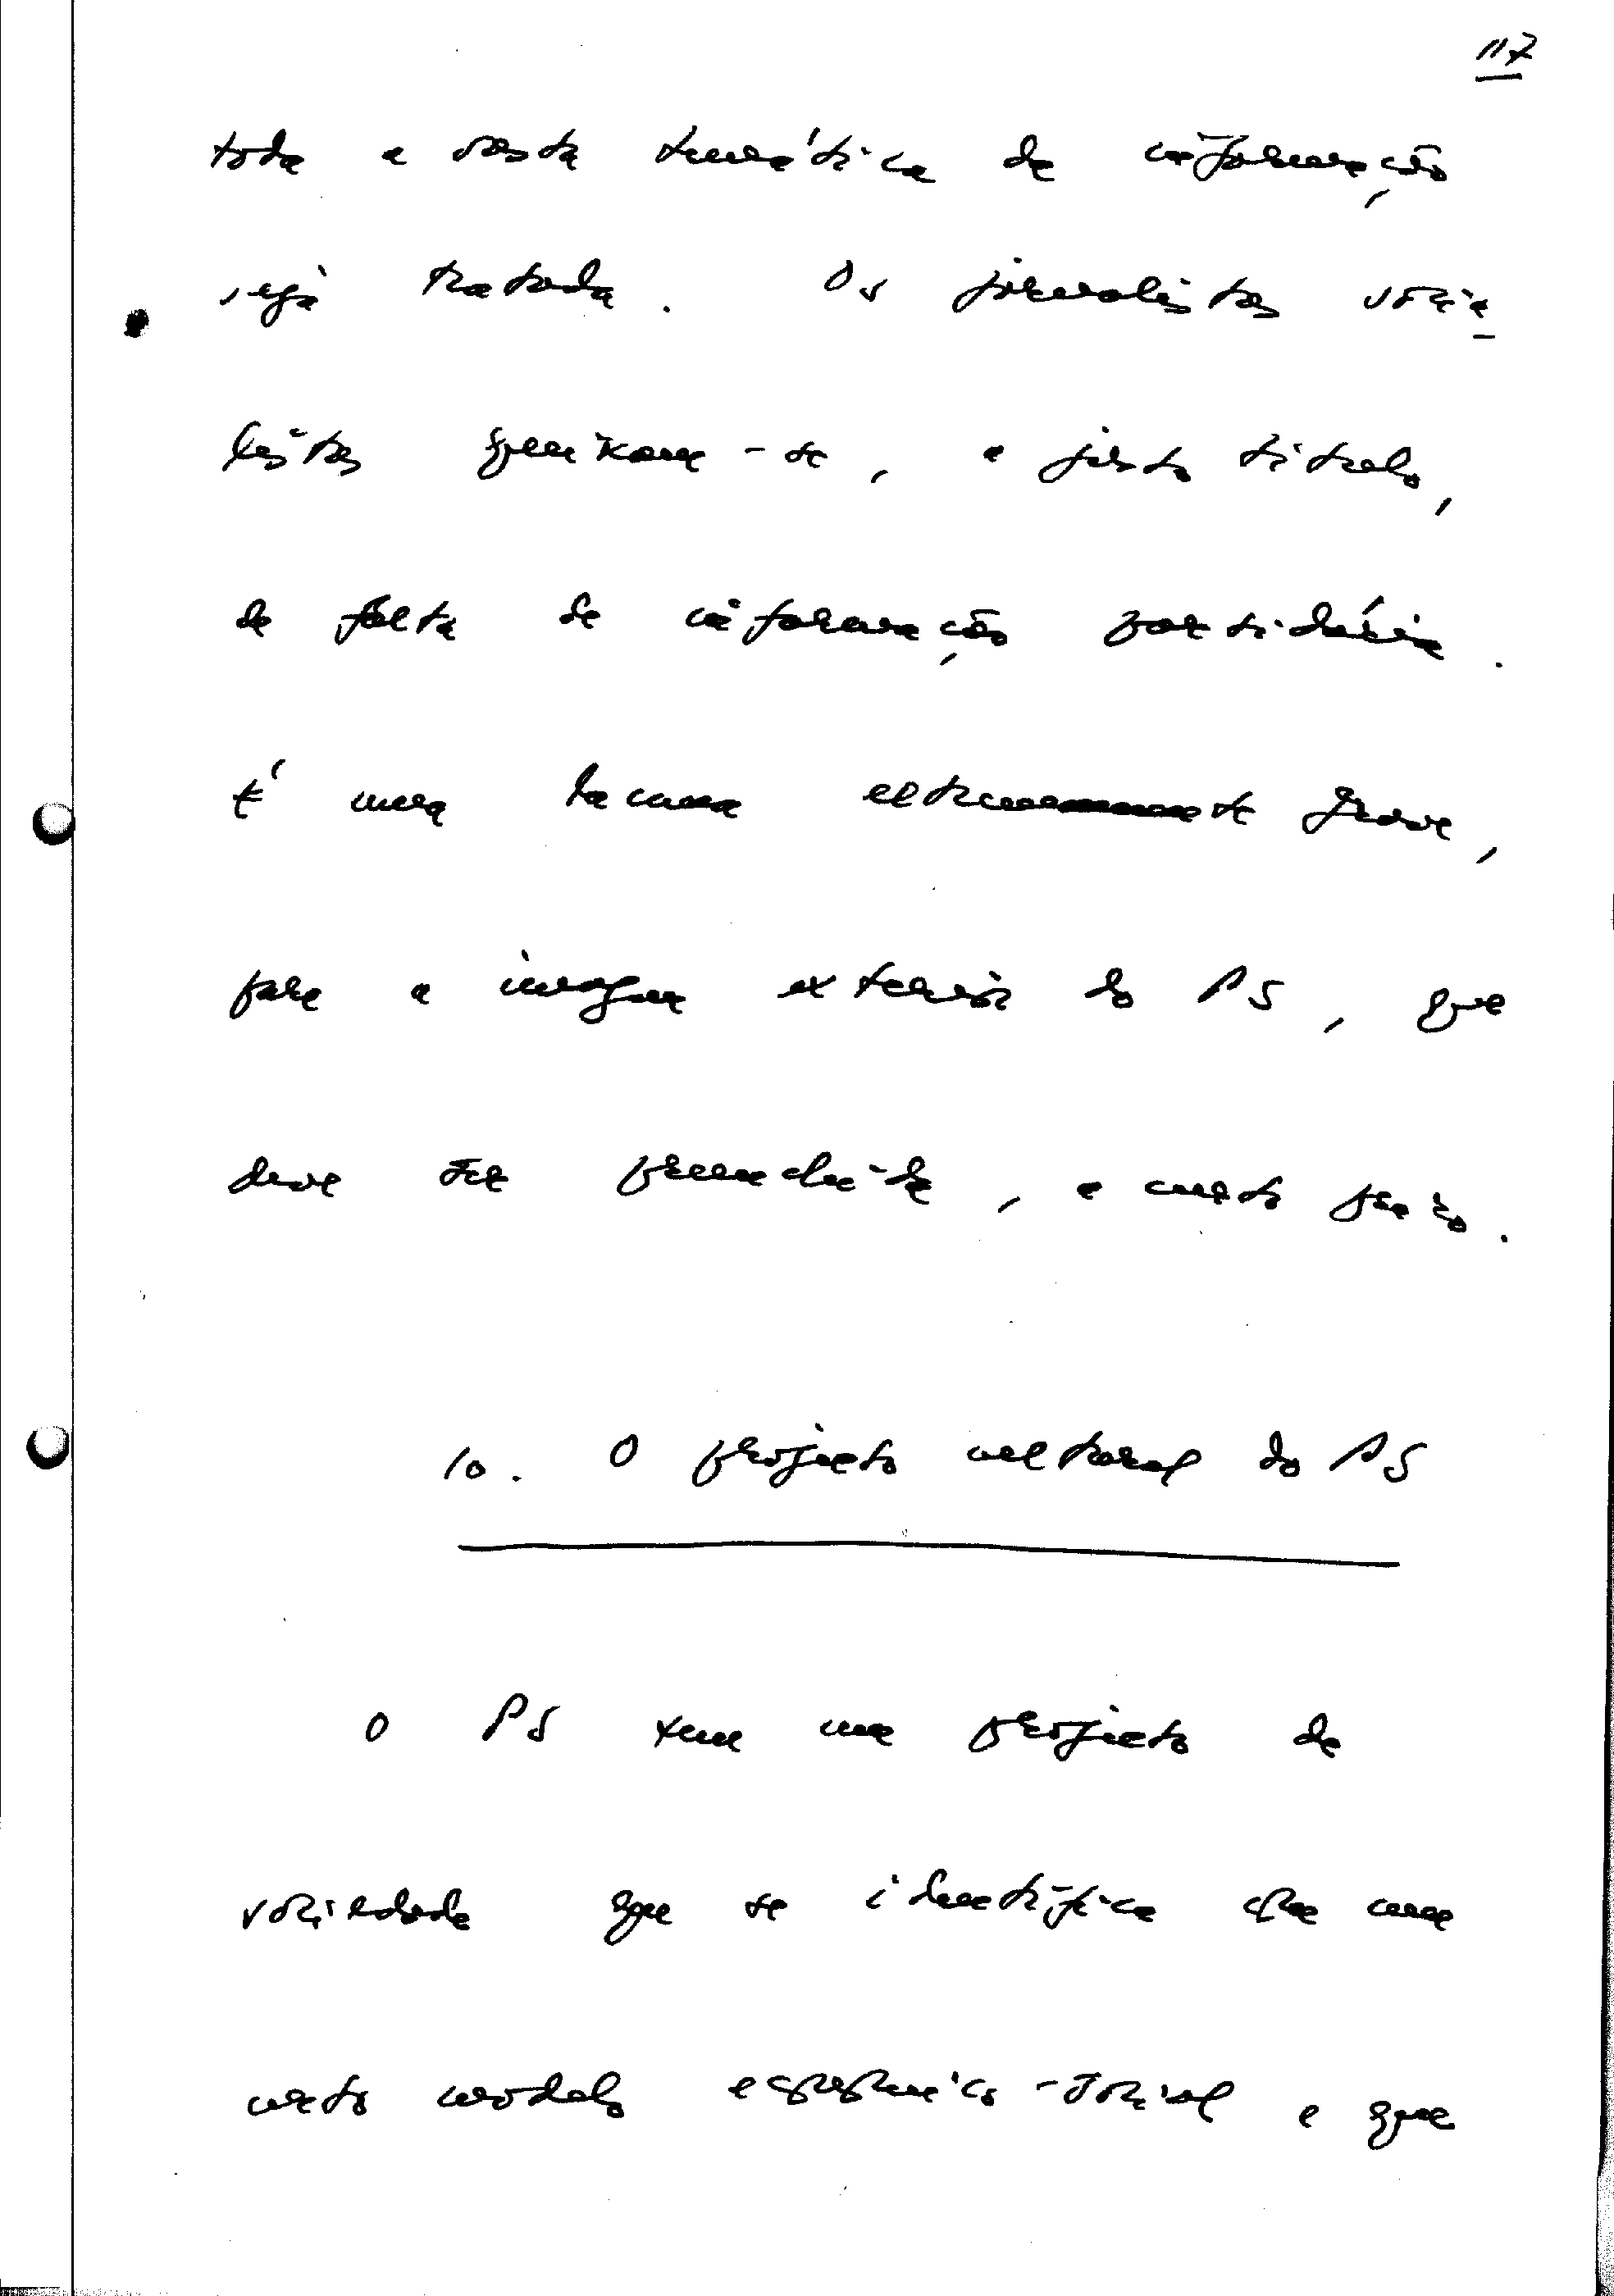 117
toda a vasta temática da informação
seja tratada. Os jornalistas socia
listas queixam-se, a justo título,
da falta de informação partidária.
É uma lacuna extremamente grave,
para a imagem exterior do PS, que
deve ser preenchida, a curto prazo.
10. O projecto cultural do PS
O PS tem um projecto de
sociedade que se identifica com um
certo modelo económico-social e que